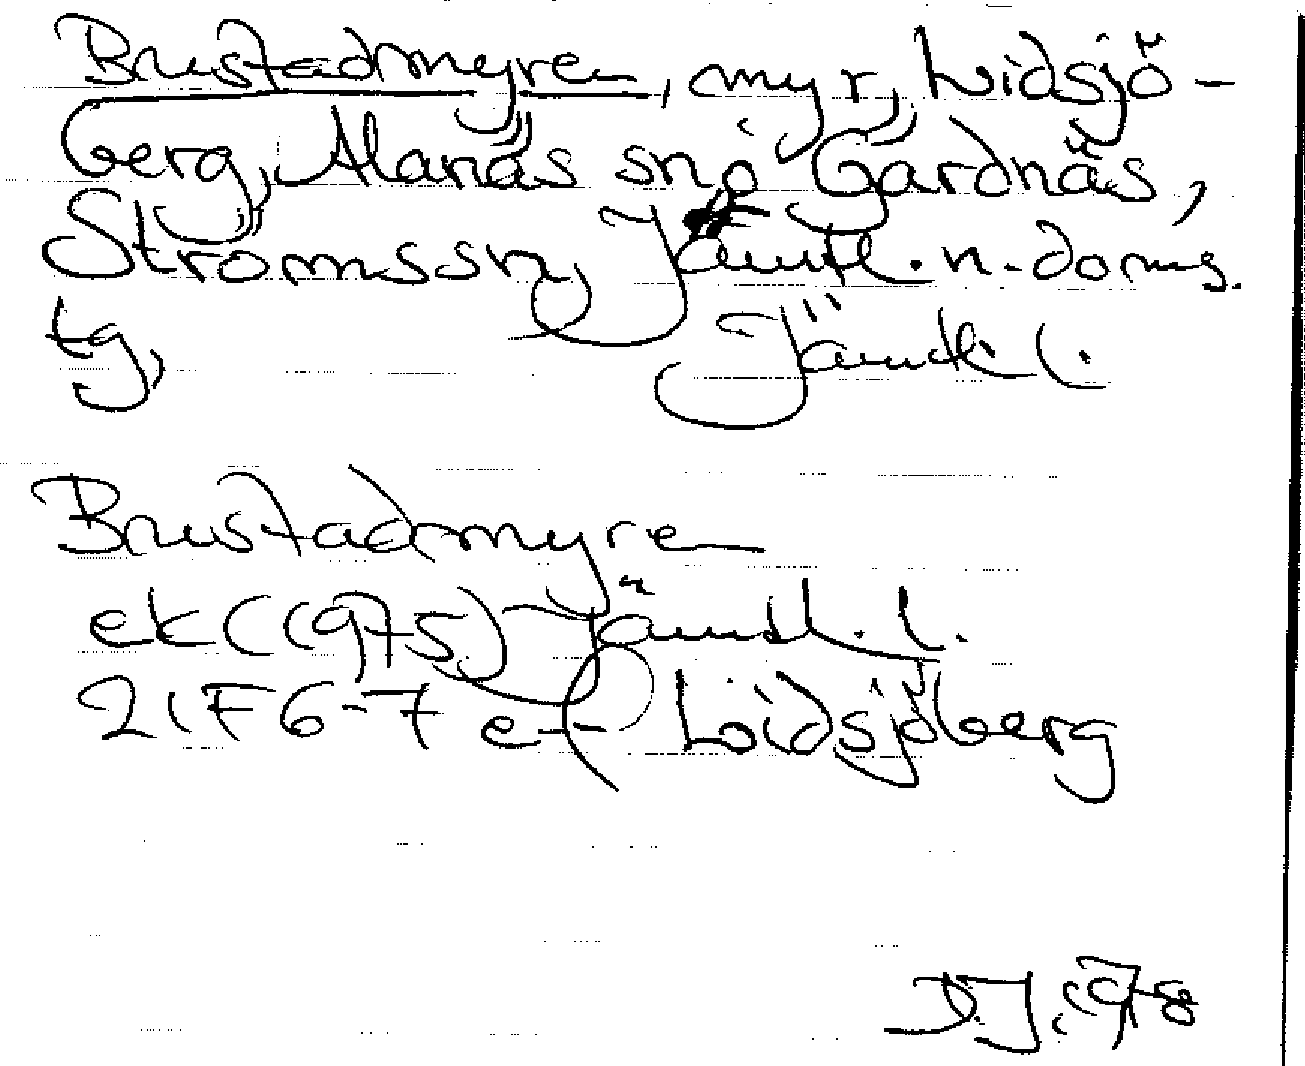 Brustadmyren, myr, Lidsjö-
berg, Alanäs sn, Gärdnäs,
Stromssn, Jämtl. n. doms.
tg, Jämtl. l.
Brustadmyren
ek (1975) Jämtl. l.
21F6-7 e-f Lidsjöberg
D.J. 1978